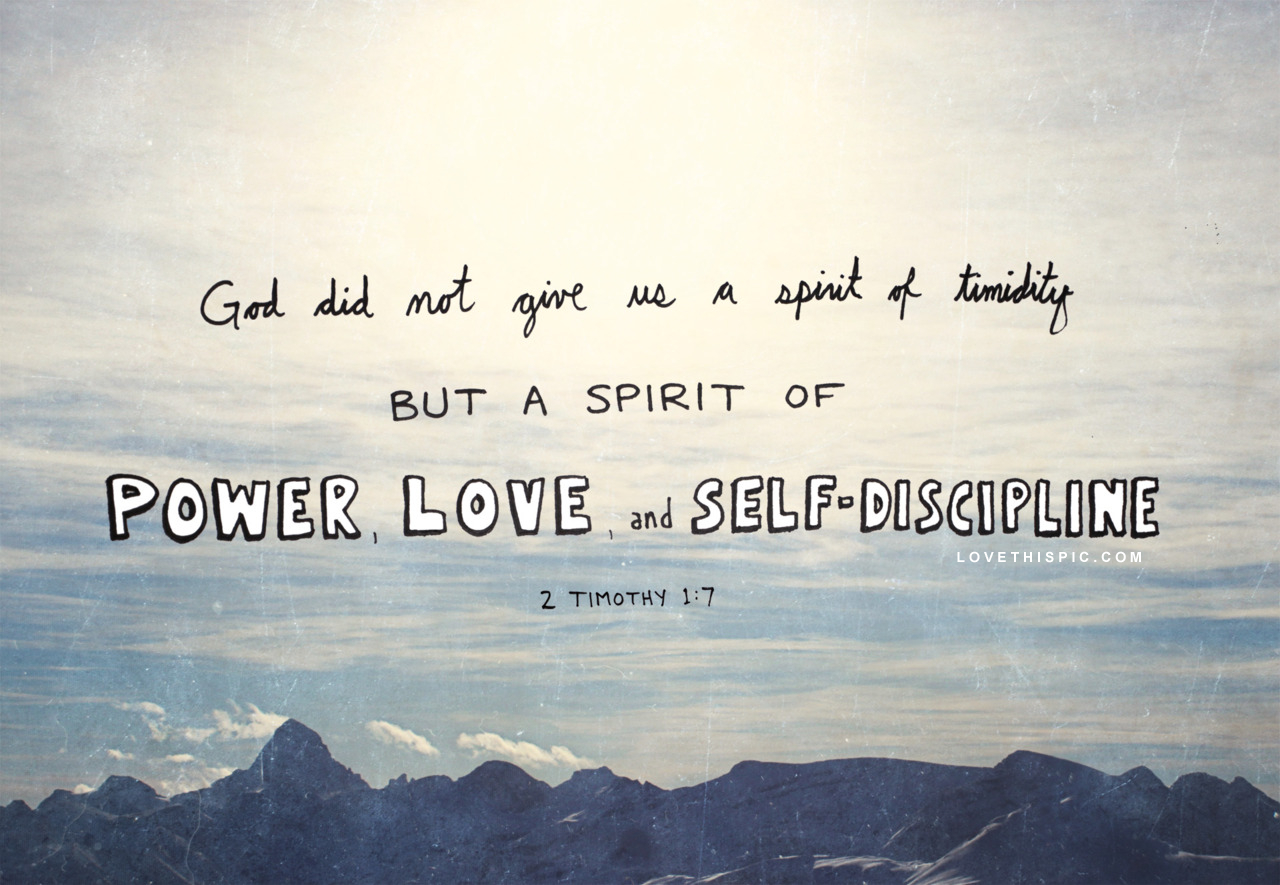 God did not give us a spirit of timidity
BUT A SPIRIT OF
POWER, LOVE, and SELF-DISCIPLINE
LOVETHISPIC.COM
2 TIMOTHY 1:7